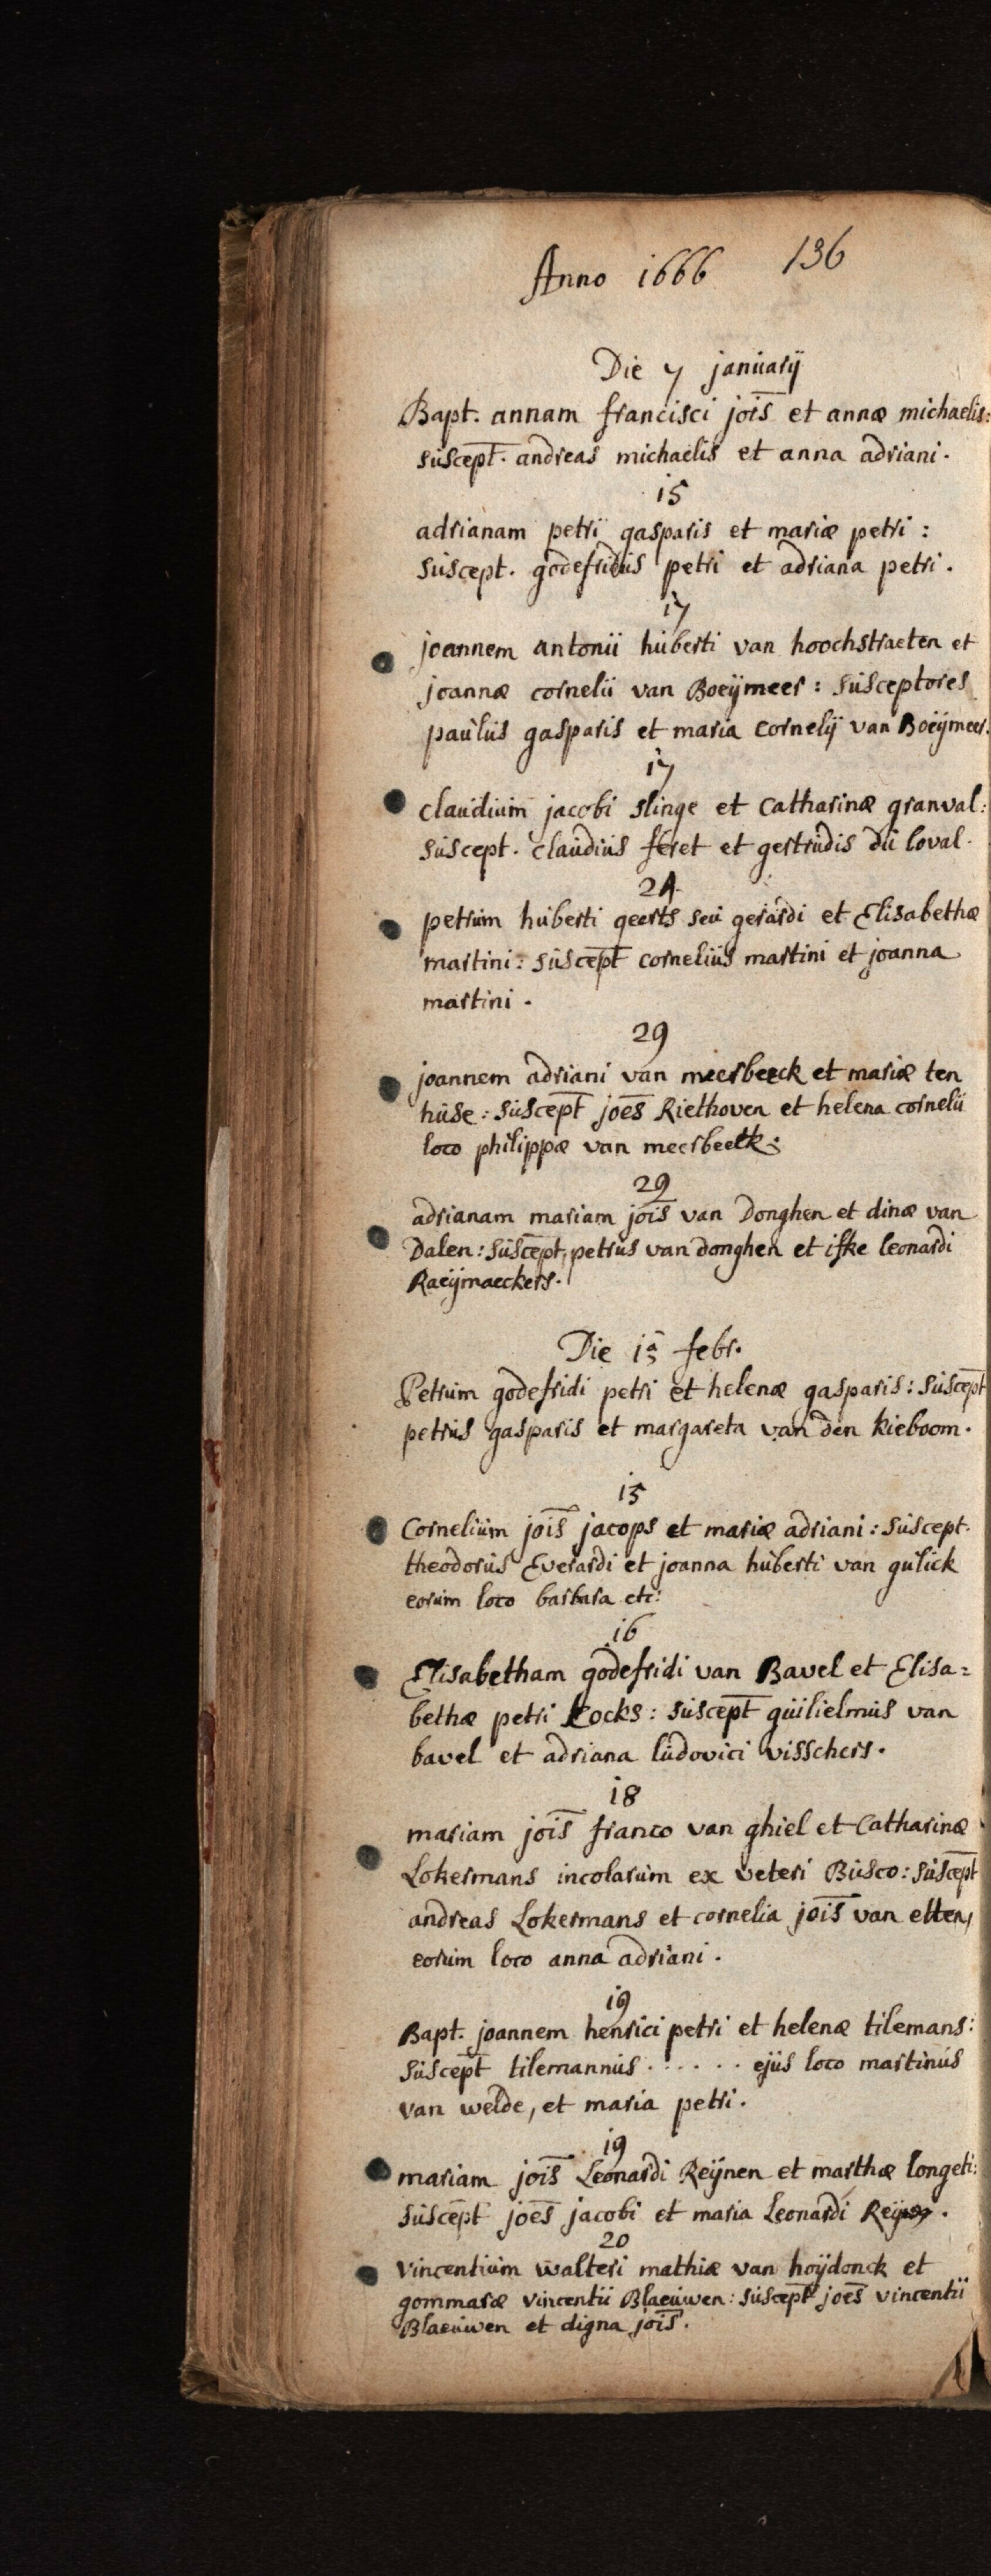 Anno 1666 136
Die 7 januarij
Bapt. annam francisci jois et annæ michaelis:
suscept. andreas michaelis et anna adriani.
15
adrianam petri gasparis et mariæ petri :
suscept. godefridus petri et adriana petri.
17
joannem antonii huberti van hoochstraeten et
joannæ cornelii van Boeijmeer : susceptores
paulus gasparis et maria Cornelij van Boeijmeer.
17
claudium jacobi slinge et Catharinæ granval:
suscept. claudius feret et gertrudis du loval.
24
petrum huberti geerts seu gerardi et Elisabethæ
martini: suscept cornelius martini et joanna
martini.
29
joannem adriani van meerbeeck et mariæ ten
huse: suscept joes Riethoven et helena cornelii
loco philippæ van meerbeeck:
29
adrianam mariam jois van Donghen et dinæ van
Dalen: suscept, petrus van donghen et ifke leonardi
Raeijmaeckers.
Die febr.
Petrum godefridi petri et helenæ gasparis: suscept
petrus gasparis et margareta van den kieboom.
15
Cornelium jois jacops et mariæ adriani: suscept.
theodorus Everardi et joanna huberti van gulick
eorum loco barbara etc:
16
Elisabetham godefridi van Bavel et Elisa=
bethæ petri Kocks: suscept guilielmus van
bavel et adriana ludovici visschers.
18
mariam jois franco van ghiel et Catharinæ
Lokermans incolarum ex veteri Busco: suscept
andreas Lokermans et cornelia jois van etten,
eorum loco anna adriani.
19
Bapt. joannem henrici petri et helenæ tilemans:
suscept tilemannus . . . . . . ejus loco martinus
van welde, et maria petri.
19
mariam jois Leonardi Reijnen et marthæ longeti:
suscept joes jacobi et maria Leonardi .
20
Vincentium walteri mathiæ van hoijdonck et
gommaræ vincentii Blaeuwen: suscept joes vincentii
Blaeuwen et digna jois.